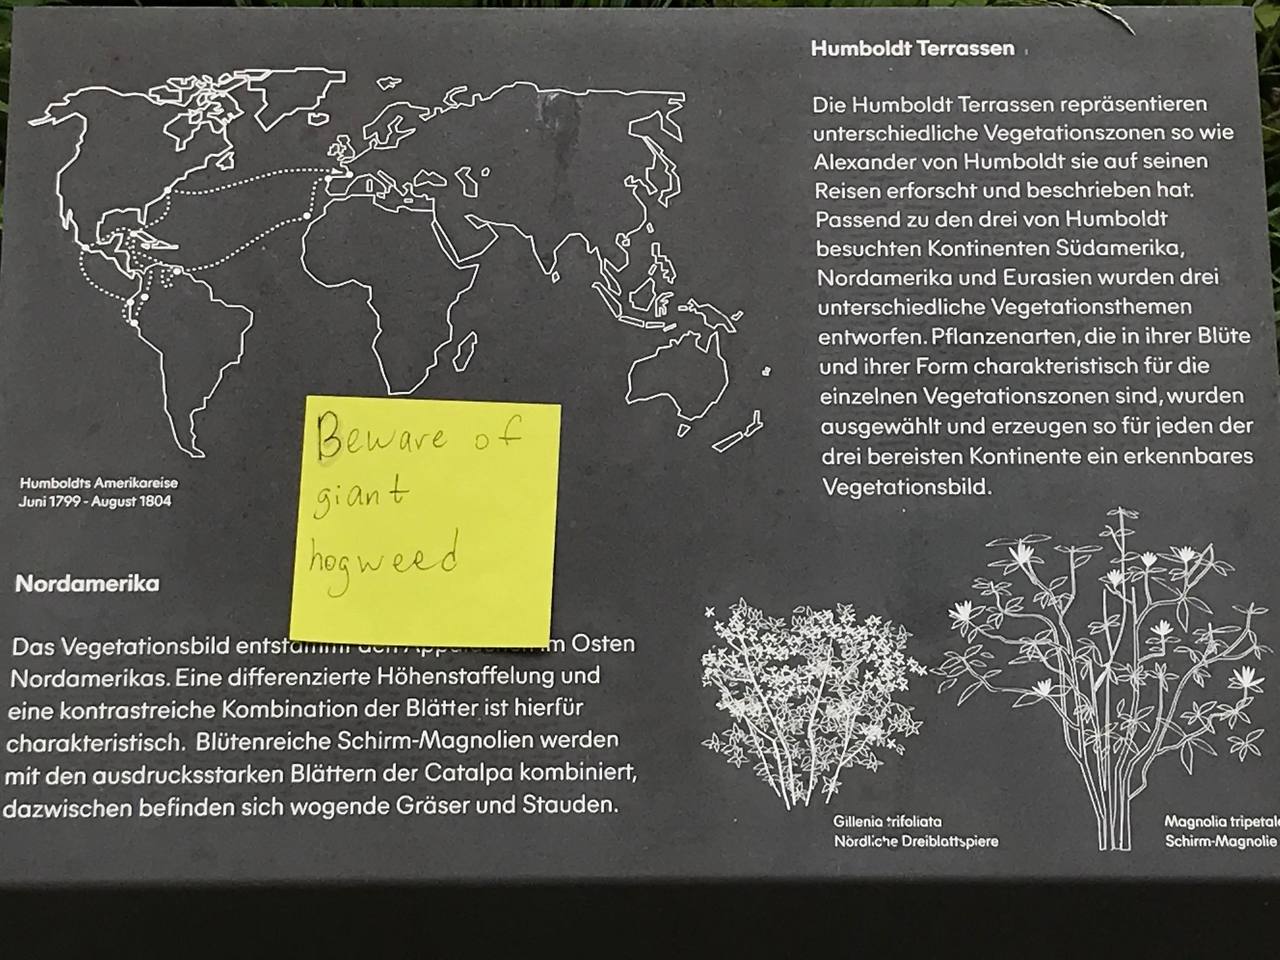 Humboldt Terrassen
Die Humboldt Terrassen repräsentieren
unterschiedliche Vegetationszonen so wie
Alexander von Humboldt sie auf seinen
Reisen erforscht und beschrieben hat.
Passend zu den drei von Humboldt
besuchten Kontinenten Südamerika,
Nordamerika und Eurasien wurden drei
unterschiedliche Vegetationsthemen
entworfen. Pflanzenarten, die in ihrer Blüte
und ihrer Form charakteristisch für die
einzelnen Vegetationszonen sind, wurden
ausgewählt und erzeugen so für jeden der
drei bereisten Kontinente ein erkennbares
Vegetationsbild.
Humboldts Amerikareise
Juni 1799 - August 1804
Beware of
giant
hogweed
Nordamerika
Das Vegetationsbild Osten
Nordamerikas. Eine differenzierte Höhenstaffelung und
eine kontrastreiche Kombination der Blätter ist hierfür
charakteristisch. Blütenreiche Schirm-Magnolien werden
mit den ausdrucksstarken Blättern der Catalpa kombiniert,
dazwischen befinden sich wogende Gräser und Stauden.
Gillenia trifoliata
Nördliche Dreiblattspiere
Magnolia tripetal
Schirm-Magnolie